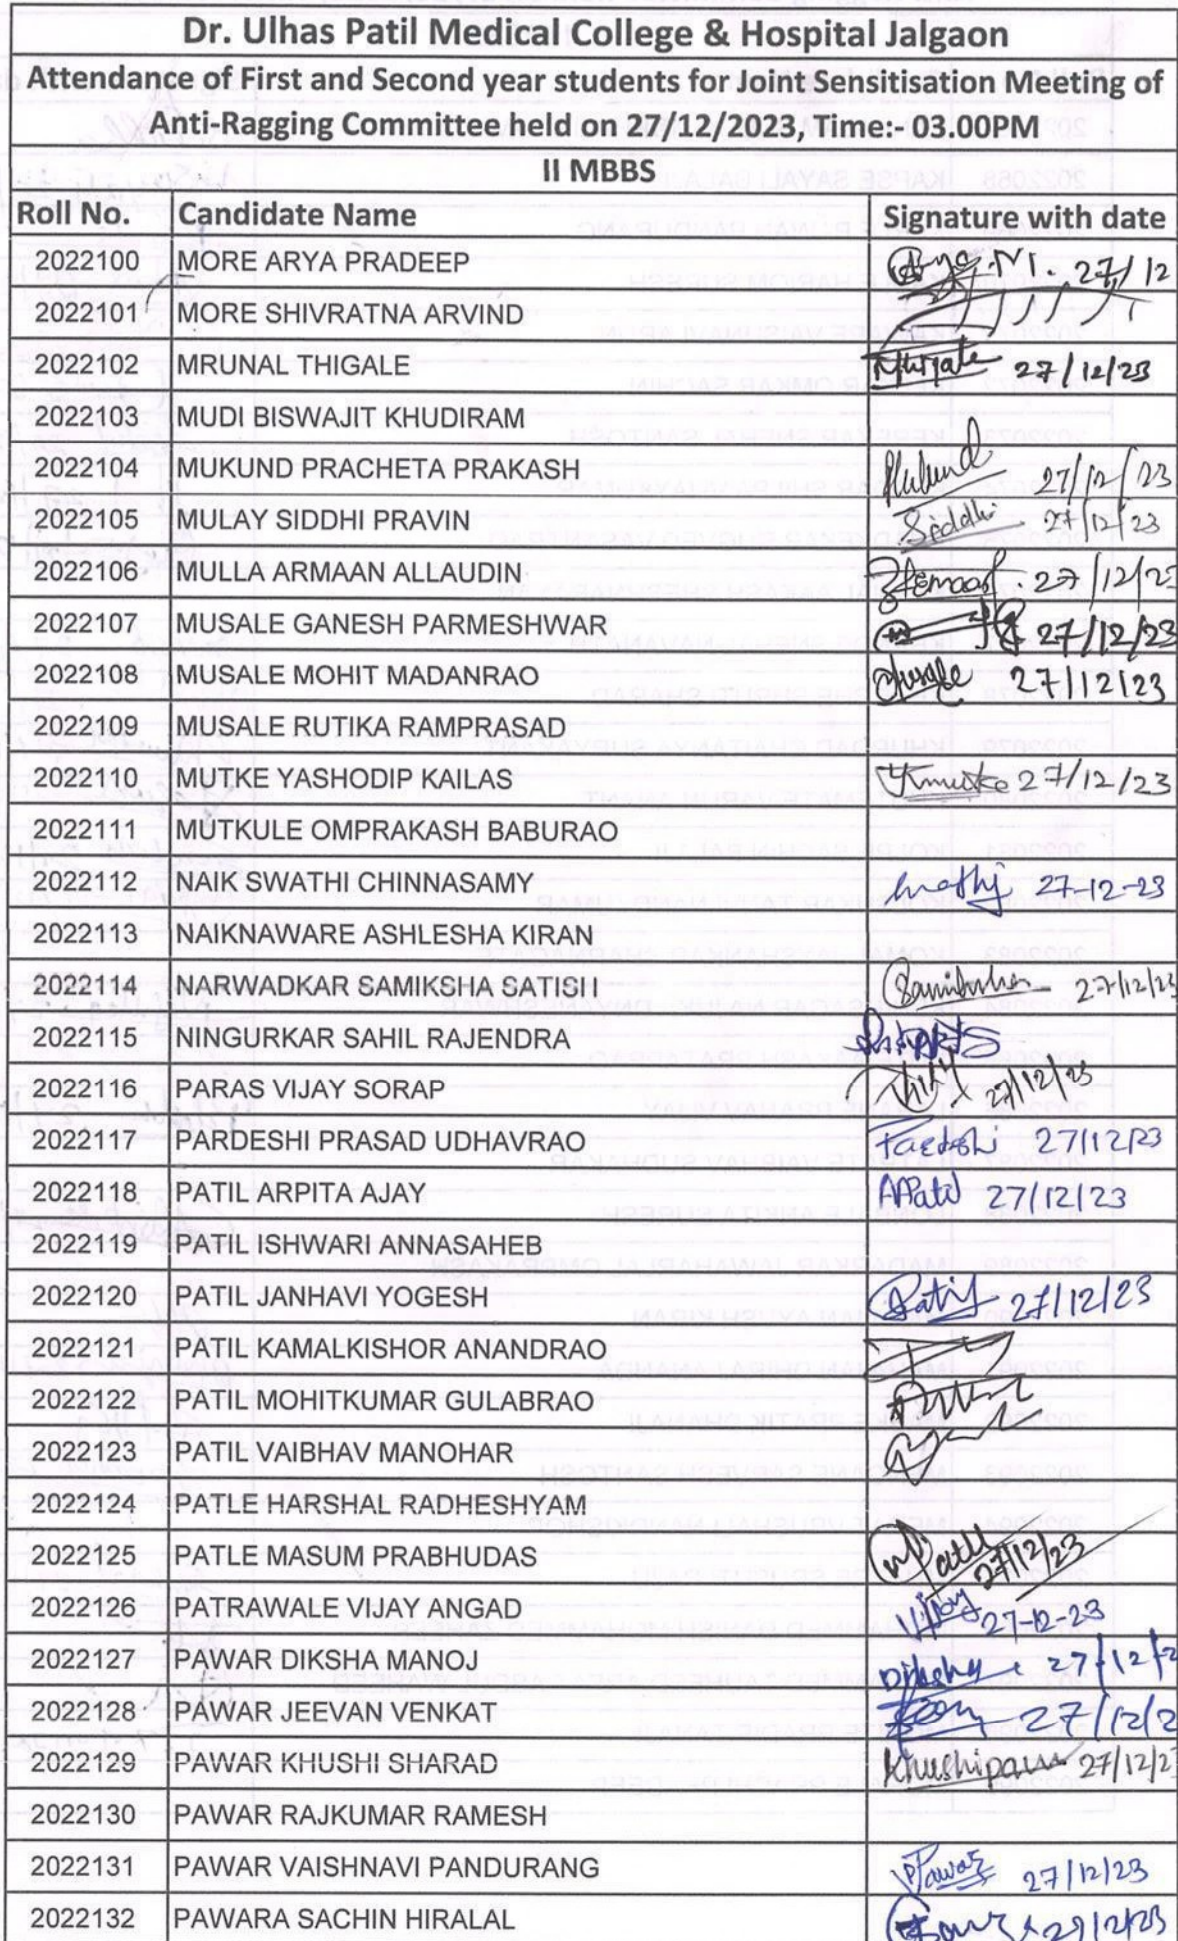 Dr. Ulhas Patil Medical College & Hospital Jalgaon
Attendance of First and Second year students for Joint Sensitisation Meeting of
Anti-Ragging Committee held on 27/12/2023, Time:- 03.00PM
II MBBS
Roll No. Candidate Name Signature with date
2022100 MORE ARYA PRADEEP 27/12
2022101 MORE SHIVRATNA ARVIND
2022102 MRUNAL THIGALE 27/12/23
2022103 MUDI BISWAJIT KHUDIRAM
2022104 MUKUND PRACHETA PRAKASH Mukund 27/12/23
2022105 MULAY SIDDHI PRAVIN Siddhi 27/12/23
2022106 MULLA ARMAAN ALLAUDIN 27/12/23
2022107 MUSALE GANESH PARMESHWAR 27/12/23
2022108 MUSALE MOHIT MADANRAO 27/12/23
2022109 MUSALE RUTIKA RAMPRASAD
2022110 MUTKE YASHODIP KAILAS Ymutke 27/12/23
2022111 MUTKULE OMPRAKASH BABURAO
2022112 NAIK SWATHI CHINNASAMY 27-12-23
2022113 NAIKNAWARE ASHLESHA KIRAN
2022114 NARWADKAR SAMIKSHA SATISH 27/12/23
2022115 NINGURKAR SAHIL RAJENDRA
2022116 PARAS VIJAY SORAP 27/12/23
2022117 PARDESHI PRASAD UDHAVRAO Pardeshi 27/12/23
2022118 PATIL ARPITA AJAY APatil 27/12/23
2022119 PATIL ISHWARI ANNASAHEB
2022120 PATIL JANHAVI YOGESH Patil 27/12/23
2022121 PATIL KAMALKISHOR ANANDRAO
2022122 PATIL MOHITKUMAR GULABRAO
2022123 PATIL VAIBHAV MANOHAR
2022124 PATLE HARSHAL RADHESHYAM
2022125 PATLE MASUM PRABHUDAS 27/12/23
2022126 PATRAWALE VIJAY ANGAD Vijay 27-12-23
2022127 PAWAR DIKSHA MANOJ Diksha 27/12/2
2022128 PAWAR JEEVAN VENKAT 27/12/2
2022129 PAWAR KHUSHI SHARAD Khushipawar 27/12/23
2022130 PAWAR RAJKUMAR RAMESH
2022131 PAWAR VAISHNAVI PANDURANG VPawar 27/12/23
2022132 PAWARA SACHIN HIRALAL